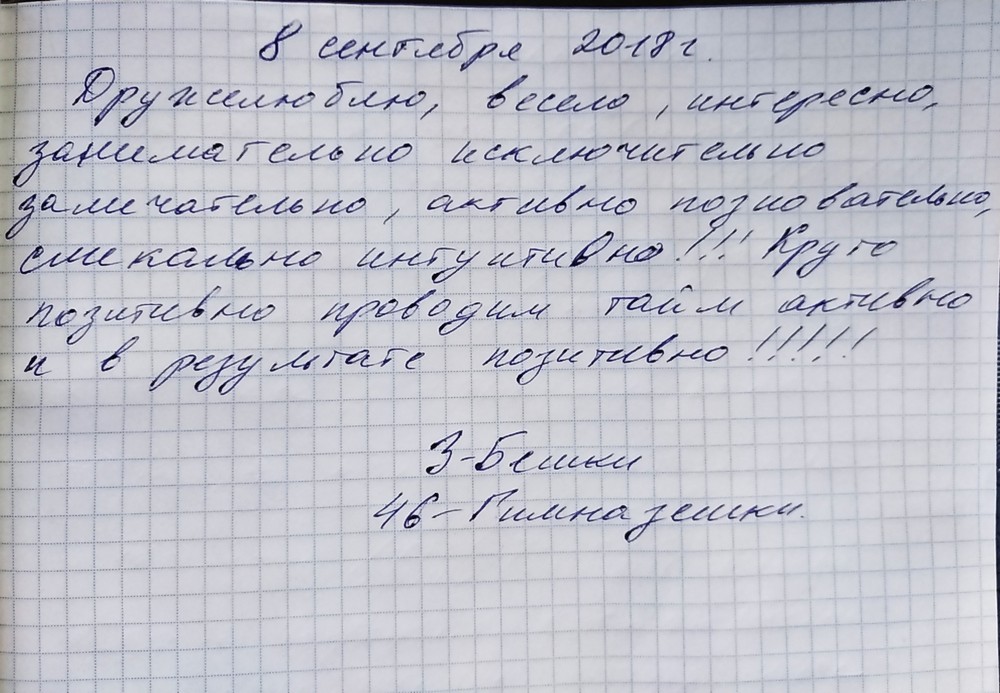 8 сентября 2018 г.
Дружелюблю, весело, интересно,
занимательно исключительно
замечательно, активно позновательно,
смекально интуитивно!!! Круто
позитивно проводим тайм активно
и в результате позитивно!!!!!
3-Бешки
46-Гимназешки.